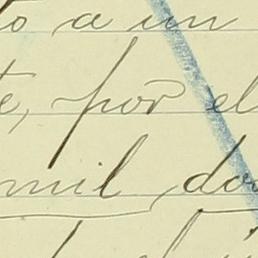 to a un
te, por el
mil do